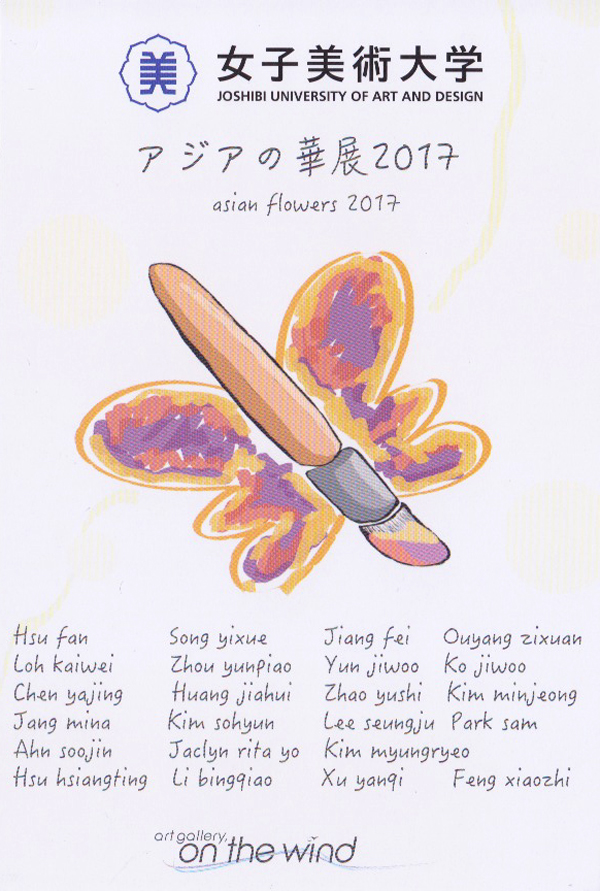 美
女子美術大学
JOSHIBI UNIVERSITY OF ART AND DESIGN
アジアの華展2017
asian flowers 2017
Hsu fan Song yixue Jiang fei Ouyang zixuan
Loh kaiwei Zhou yunpiao Yun jiwoo Ko jiwoo
Chen yajing Huang jiahui Zhao yushi Kim minjeong
Jang mina Kim sohyun Lee seungju Park sam
Ahn soojin Jaclyn rita yo Kim myungryeo
Hsu hsiangting Li bingqiao Xu yanqi Feng xiaozhi
art gallery,
on the wind